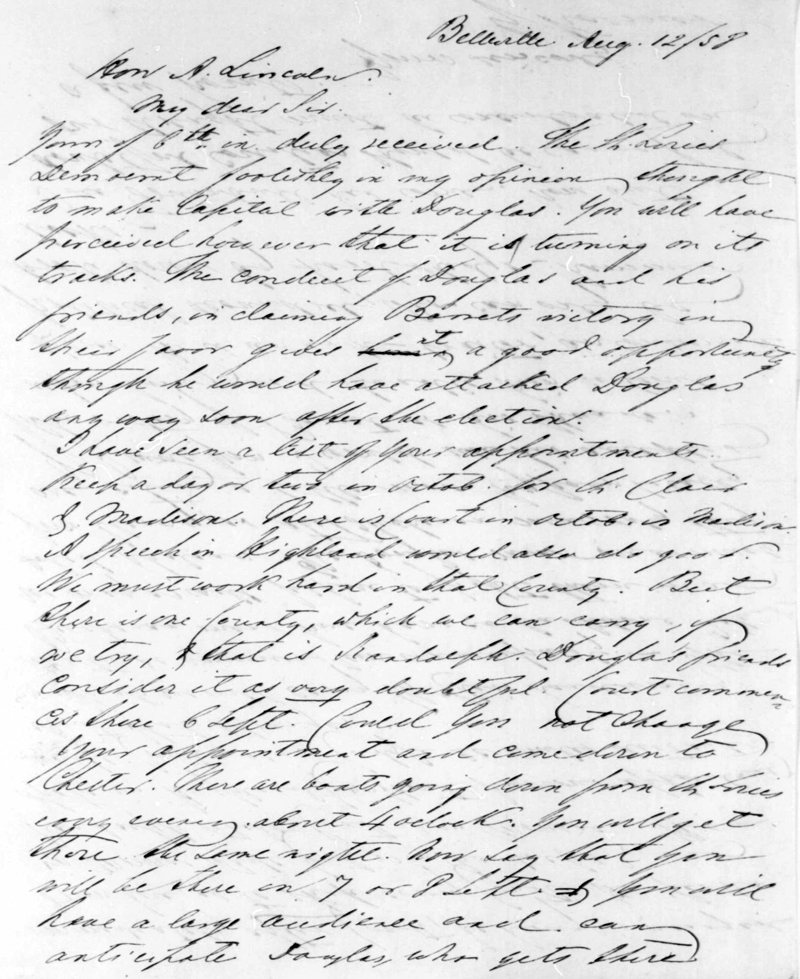 Belleville Aug. 12/58
Hon A. Lincoln.
My dear Sir.
Yours of 6th in. duly received. The St. Louis
Democrat foolishly in my opinion thought
to make Capital with Douglas. You will have
perceived however that it is turning on its
tracks. The conduct of Douglas and his
friends, in claiming Barrets victory in
their favor gives it a good opportunity
though he would have attacked Douglas
any way soon after the election.
I have seen a list of your appointments.
Keep a day or two in Octob. for St. Clair
& Madison. There is Court in Octob. in Madison.
A speech in Highland would also do good.
We must work hard in that County. But
there is one County, which we can carry, if
we try, & that is Randolph. Douglas friends
consider it as very doubtful. Court commen-
ces there 6 Sept. Could you not change
your appointment and come down to
Chester. There are boats going down from St Louis
every evening about 4 oclock. You will get
there the same night. Now say that you
will be there in 7 or 8 Sept. & you will
have a large audience and can
anticipate Douglas, who gets there